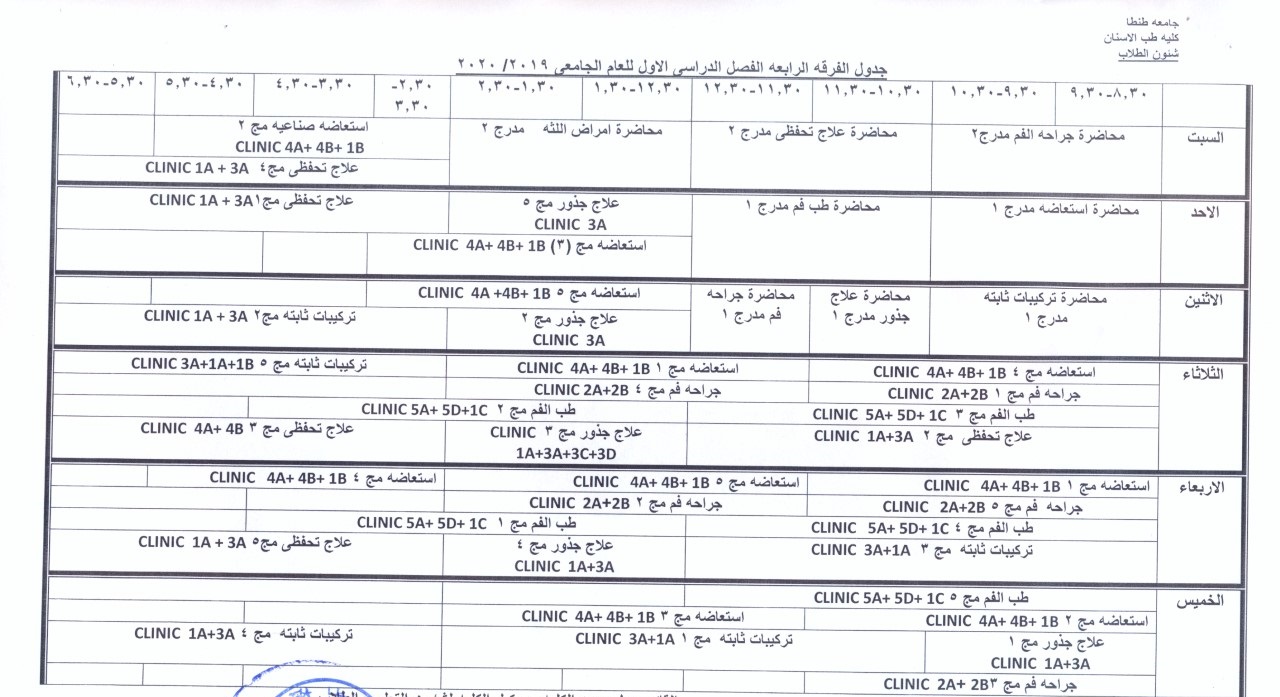 جامعه طنطا
كليه طب الاسنان
شئون الطلاب
جدول الفرقه الرابعه الفصل الدراسى الاول للعام الجامعى ٢٠١٩/ ٢٠٢٠
٨,٣٠-٩,٣٠ ٩,٣٠-١٠,٣٠ ١٠,٣٠-١١,٣٠ ١١,٣٠-١٢,٣٠ ١٢,٣٠-١,٣٠ ١,٣٠-٢,٣٠ ٢,٣٠-٣,٣٠ ٣,٣٠-٤,٣٠ ٤,٣٠-٥,٣٠ ٥,٣٠-٦,٣٠
السبت محاضرة جراحه الفم مدرج٢ محاضرة علاج تحفظى مدرج ٢ محاضرة امراض اللثه مدرج ٢ استعاضه صناعيه مج ٢
CLINIC 4A+ 4B+ 1B
علاج تحفظى مج٤ CLINIC 1A + 3A
الاحد محاضرة استعاضه مدرج ١ محاضرة طب فم مدرج ١ علاج جذور مج ٥ علاج تحفظى مج١ CLINIC 1A + 3A
CLINIC 3A
استعاضه مج (٣) CLINIC 4A+ 4B+ 1B
الاثنين محاضرة تركيبات ثابته محاضرة علاج محاضرة جراحه استعاضه مج ٥ CLINIC 4A +4B+ 1B
مدرج ١ جذور مدرج ١ فم مدرج ١ علاج جذور مج ٢ تركيبات ثابته مج٢ CLINIC 1A + 3A
CLINIC 3A
الثلاثاء استعاضه مج ٤ CLINIC 4A+ 4B+ 1B استعاضه مج ١ CLINIC 4A+ 4B+ 1B تركيبات ثابته مج ٥ CLINIC 3A+1A+1B
جراحه فم مج ١ CLINIC 2A+2B جراحه فم مج ٤ CLINIC 2A+2B
طب الفم مج ٣ CLINIC 5A+ 5D+ 1C طب الفم مج ٢ CLINIC 5A+ 5D+1C
علاج تحفظى مج ٢ CLINIC 1A+3A علاج جذور مج ٣ CLINIC علاج تحفظى مج ٣ CLINIC 4A+ 4B
1A+3A+3C+3D
الاربعاء استعاضه مج ١ CLINIC 4A+ 4B+ 1B استعاضه مج ٥ CLINIC 4A+ 4B+ 1B استعاضه مج ٤ CLINIC 4A+ 4B+ 1B
جراحه فم مج ٥ CLINIC 2A+2B جراحه فم مج ٢ CLINIC 2A+2B
طب الفم مج ٤ CLINIC 5A+ 5D+ 1C طب الفم مج ١ CLINIC 5A+ 5D+ 1C
تركيبات ثابته مج ٣ CLINIC 3A+1A علاج جذور مج ٤ علاج تحفظى مج٥ CLINIC 1A + 3A
CLINIC 1A+3A
الخميس طب الفم مج ٥ CLINIC 5A+ 5D+ 1C
استعاضه مج ٢ CLINIC 4A+ 4B+ 1B استعاضه مج ٣ CLINIC 4A+ 4B+ 1B
علاج جذور مج ١ تركيبات ثابته مج ١ CLINIC 3A+1A تركيبات ثابته مج ٤ CLINIC 1A+3A
CLINIC 1A+3A
جراحه فم مج٣ CLINIC 2A+ 2B